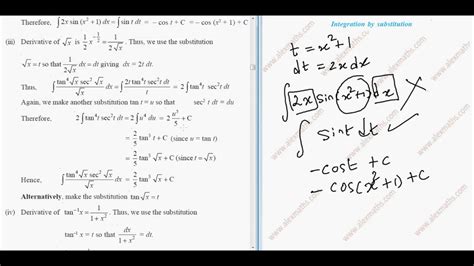 Therefore, ∫2x sin (x² + 1) dx = ∫sin t dt = – cos t + C = – cos (x² + 1) + C
(iii) Derivative of √x is 1/2 x^(-1/2) = 1/(2√x). Thus, we use the substitution
√x = t so that 1/(2√x) dx = dt giving dx = 2t dt.
Thus, ∫ tan⁴√x sec²√x / √x dx = ∫ 2t tan⁴t sec²t dt / t = 2 ∫ tan⁴t sec²t dt
Again, we make another substitution tan t = u so that sec² t dt = du
Therefore, 2 ∫ tan⁴t sec²t dt = 2 ∫ u⁴ du = 2 u⁵/5 + C
= 2/5 tan⁵ t + C (since u = tan t)
= 2/5 tan⁵ √x + C (since t = √x)
Hence, ∫ tan⁴√x sec²√x / √x dx = 2/5 tan⁵ √x + C
Alternatively, make the substitution tan√x = t
(iv) Derivative of tan⁻¹x = 1/(1 + x²). Thus, we use the substitution
tan⁻¹ x = t so that dx/(1 + x²) = dt.
Integration by substitution
t = x² + 1
dt = 2x dx
∫ 2x sin(x²+1) dx ×
∫ sint dt ✓
- cost + c
- cos(x²+1) + c
www.alexmaths.com
www.alexmaths.com
www.alexmaths.com
www.alexmaths.com